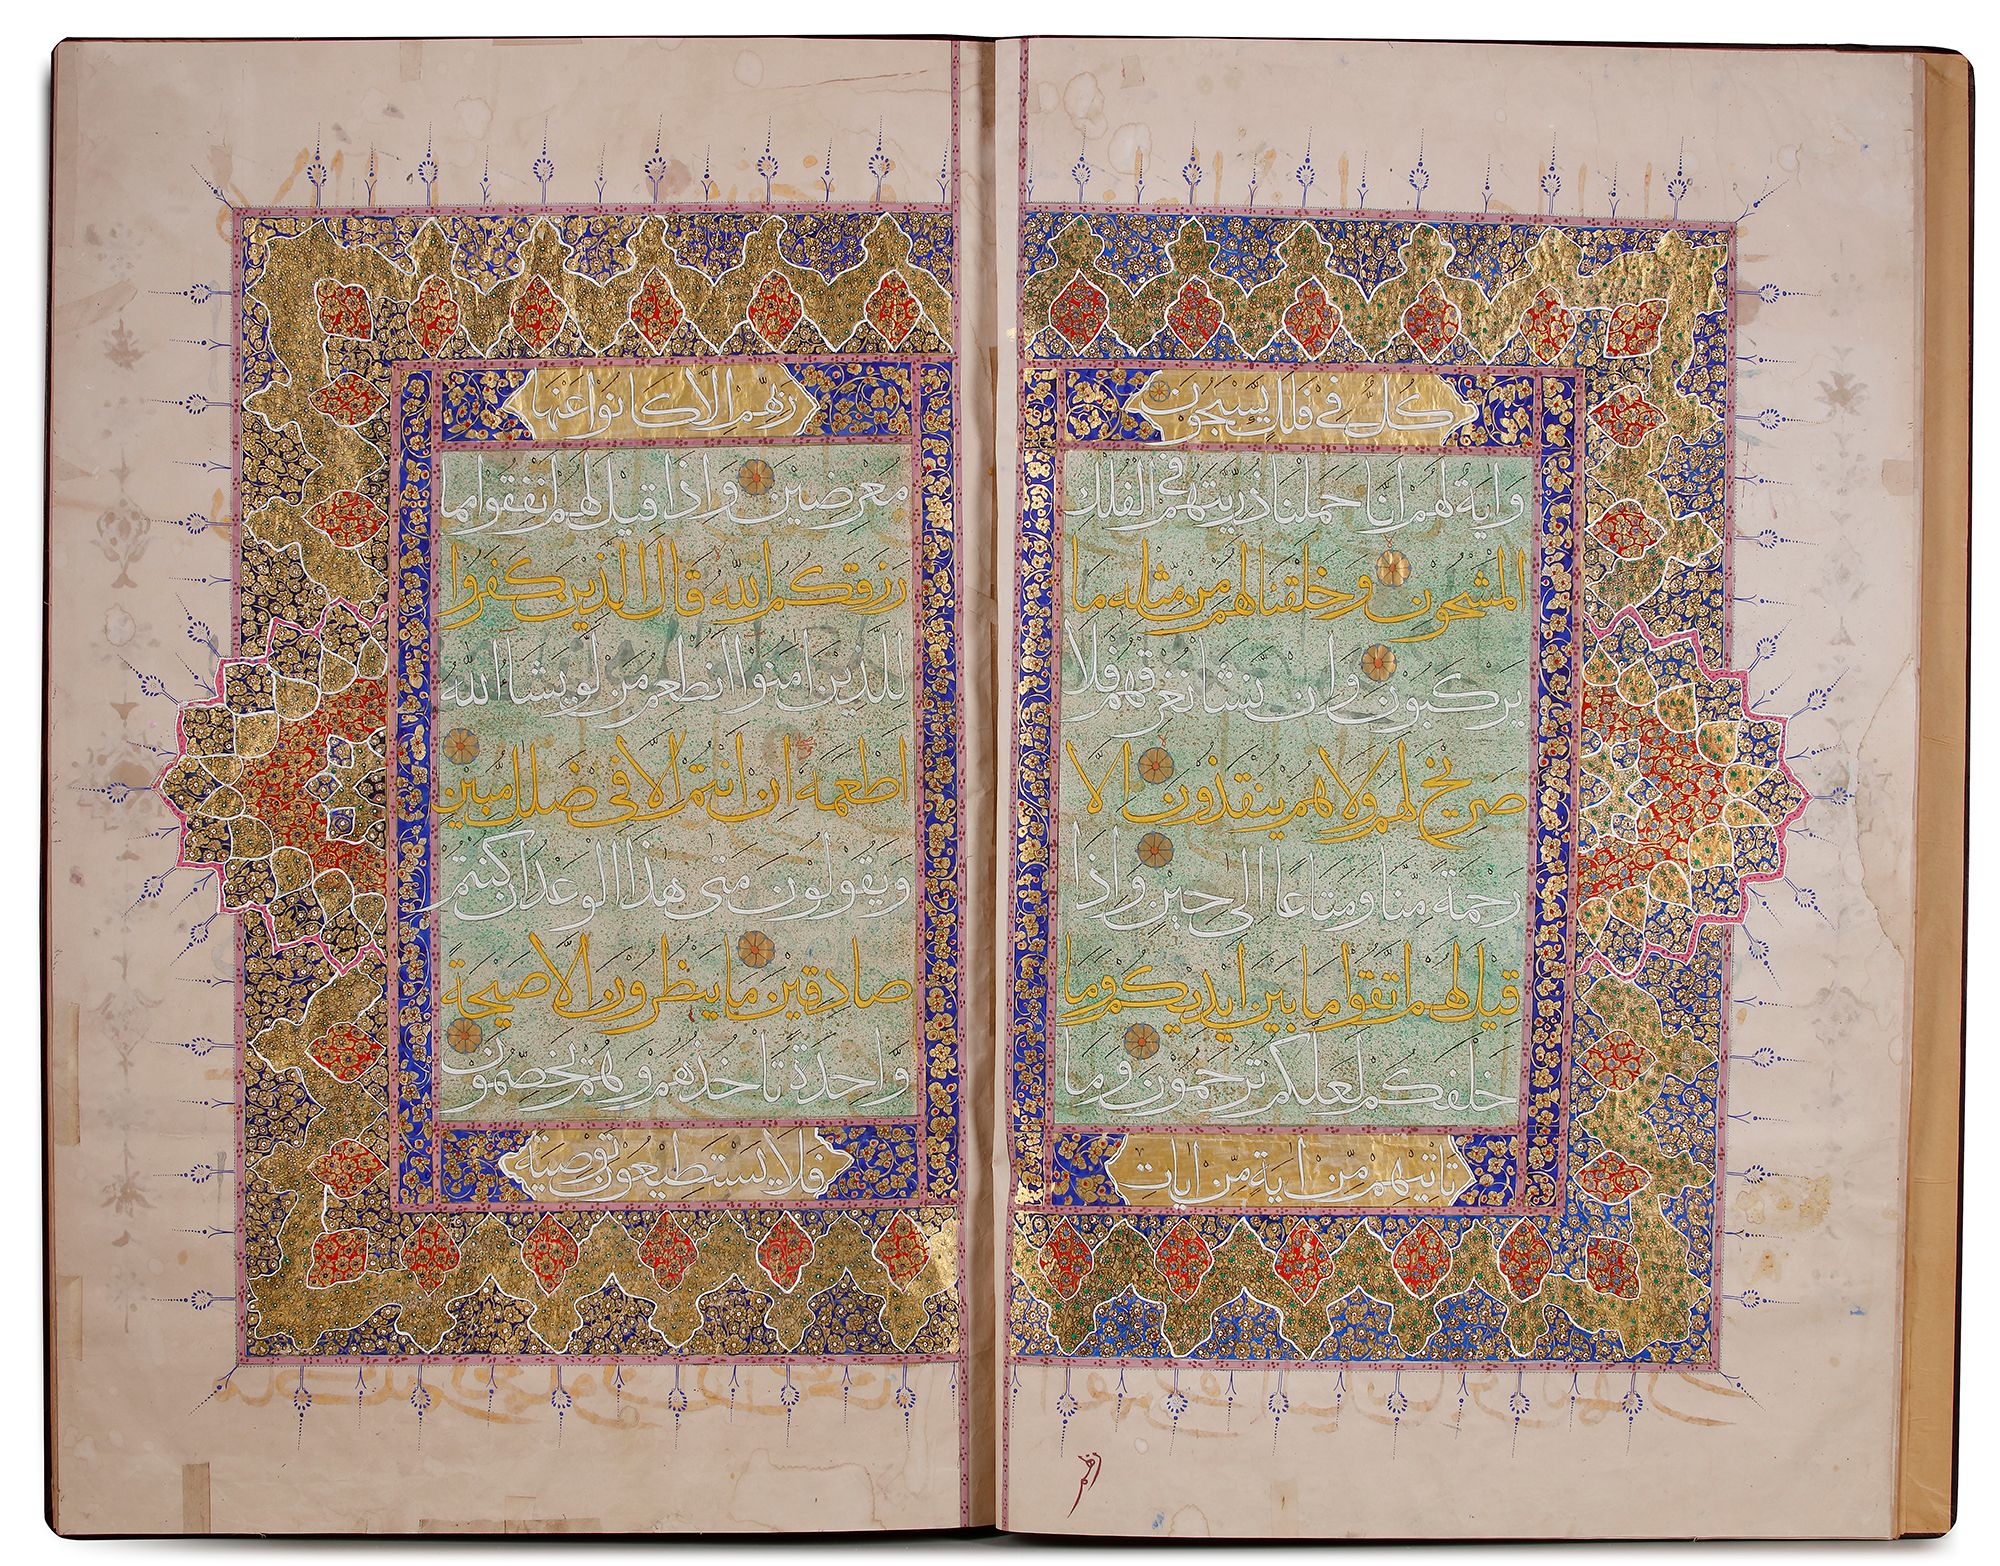 كل في فلك يسبحون
واية لهم انا حملنا ذريتهم في الفلك
المشحون وخلقنا لهم من مثله ما
يركبون وان نشا نغرقهم فلا
صريخ لهم ولا هم ينقذون الا
رحمة منا ومتاعا الى حين واذا
قيل لهم اتقوا ما بين ايديكم وما
خلفكم لعلكم ترحمون وما
تاتيهم من اية من ايات
ربهم الا كانوا عنها
معرضين واذا قيل لهم انفقوا مما
رزقكم الله قال الذين كفروا
للذين امنوا انطعم من لو يشا الله
اطعمه ان انتم الا في ضلل مبين
ويقولون متى هذا الوعد ان كنتم
صادقين ما ينظرون الا صيحة
واحدة تاخذهم وهم يخصمون
فلا يستطيعون توصية